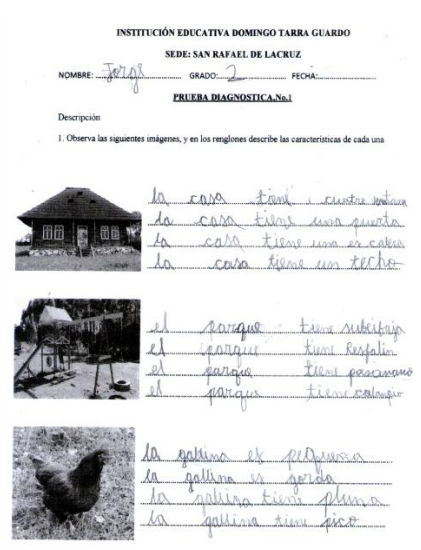 INSTITUCIÓN EDUCATIVA DOMINGO TARRA GUARDO
SEDE: SAN RAFAEL DE LACRUZ
NOMBRE: Jorge GRADO: 2 FECHA:
PRUEBA DIAGNOSTICA.No.1
Descripción
1. Observa las siguientes imágenes, y en los renglones describe las características de cada una
la casa tiene cuatro
la casa tiene una puerta
la casa tiene una es calera
la casa tiene un techo
el parque tiene subeibaja
el parque tiene Resfalin
el parque tiene pasamano
el parque tiene columpio
la gallina es pequeña
la gallina es gorda
la gallina tiene pluma
la gallina tiene pico